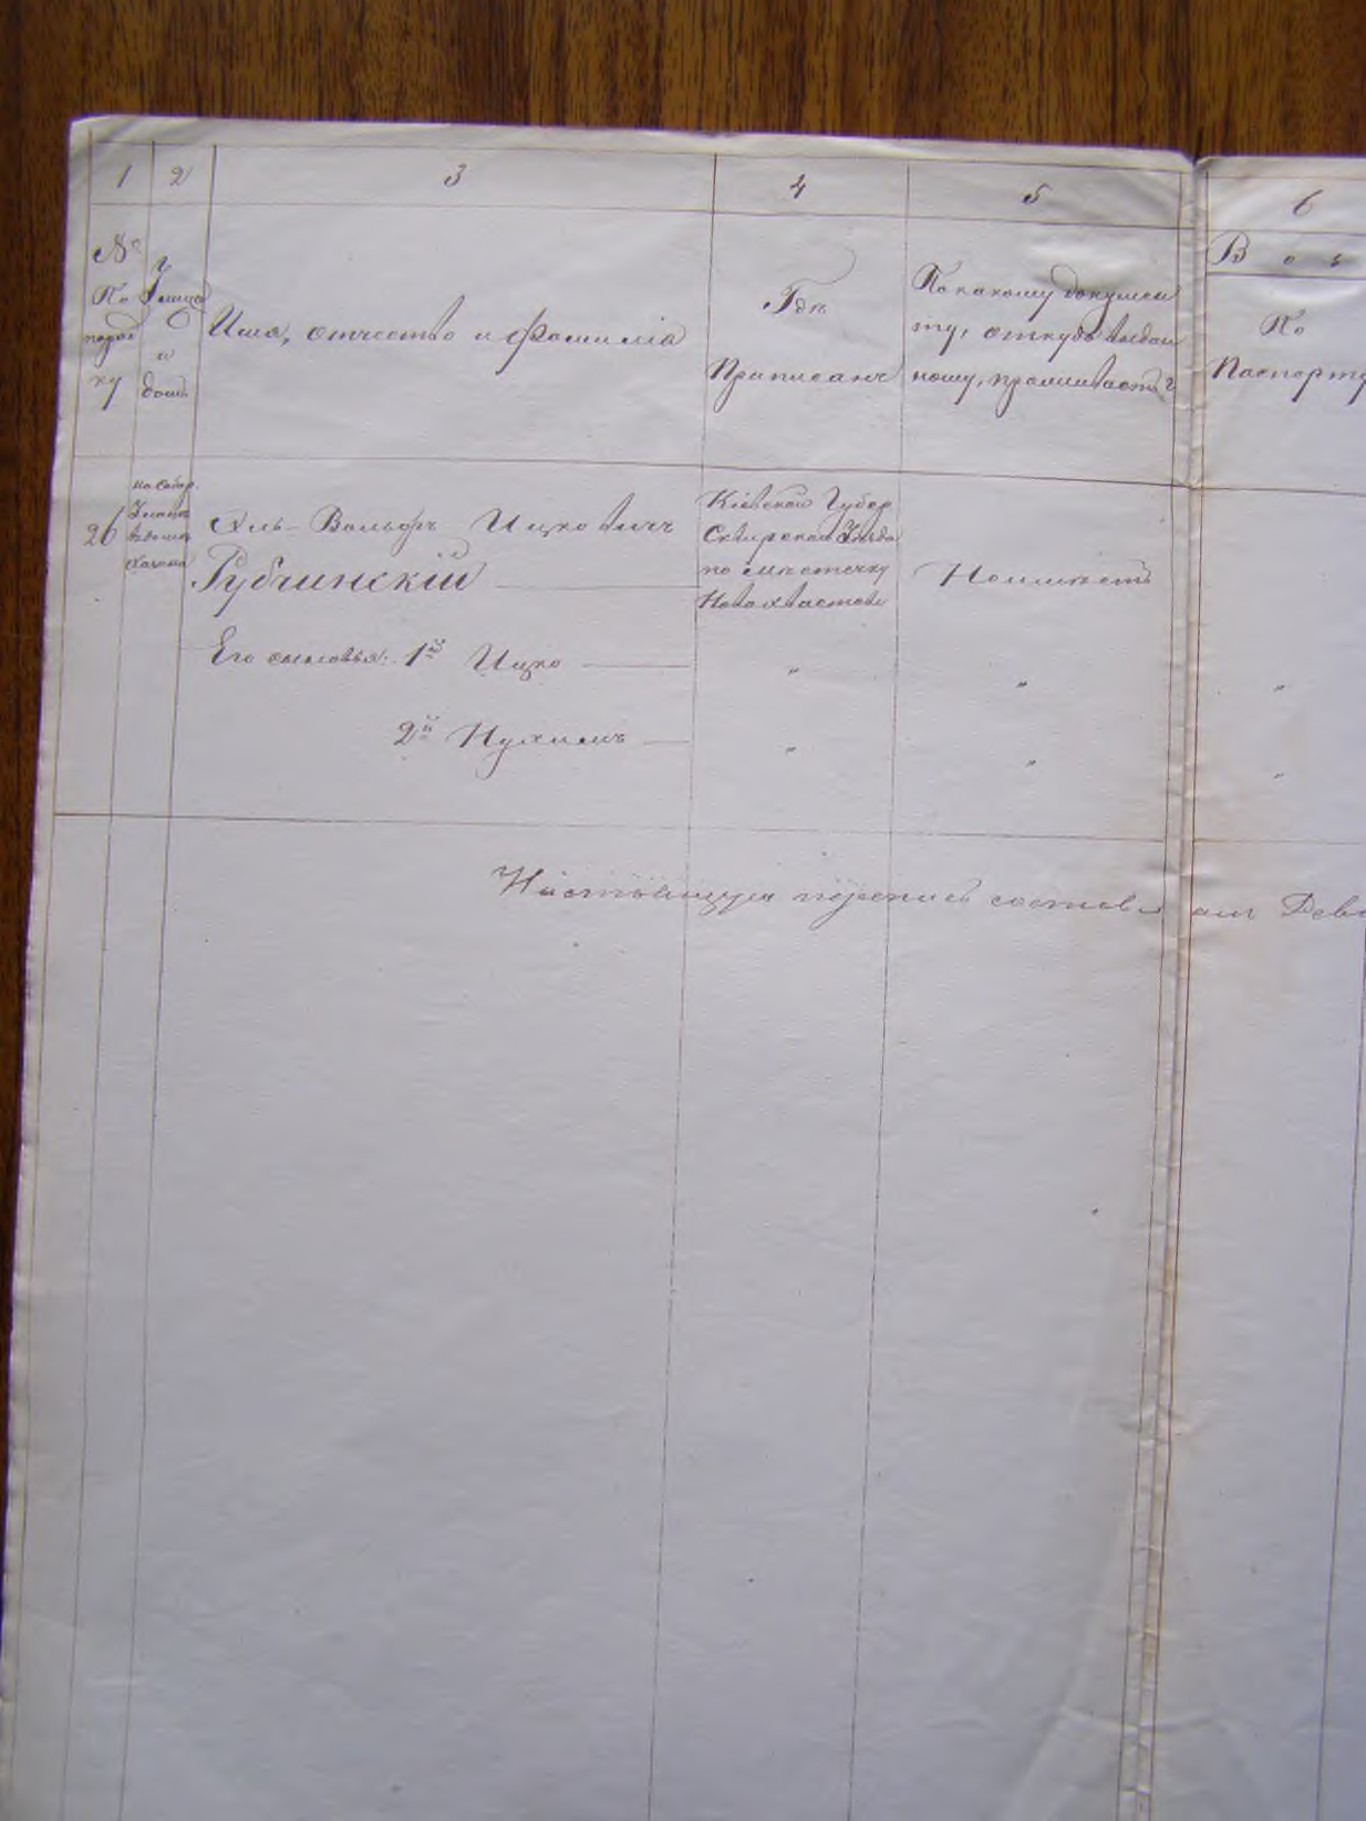 1 2 3 4 5 6
№ По поряд ку
Улица и домъ
Имя, отчество и фамилія
Гдѣ
Приписанъ
По какому докумен
ту, откуда выдан
ному, проживаетъ?
В о з
По
Паспорту
26
на Собор.
Улицѣ
въ домѣ
Вольфъ Ицковичъ
Рубчинскій
Кіевской Губер
Сквирскаго Уѣзда
по мѣстечку
Новохвастовъ
Неимѣетъ
Его сыновья: 1й Ицко " " "
2й Нухимъ " " "
Настоящую перепись составлял